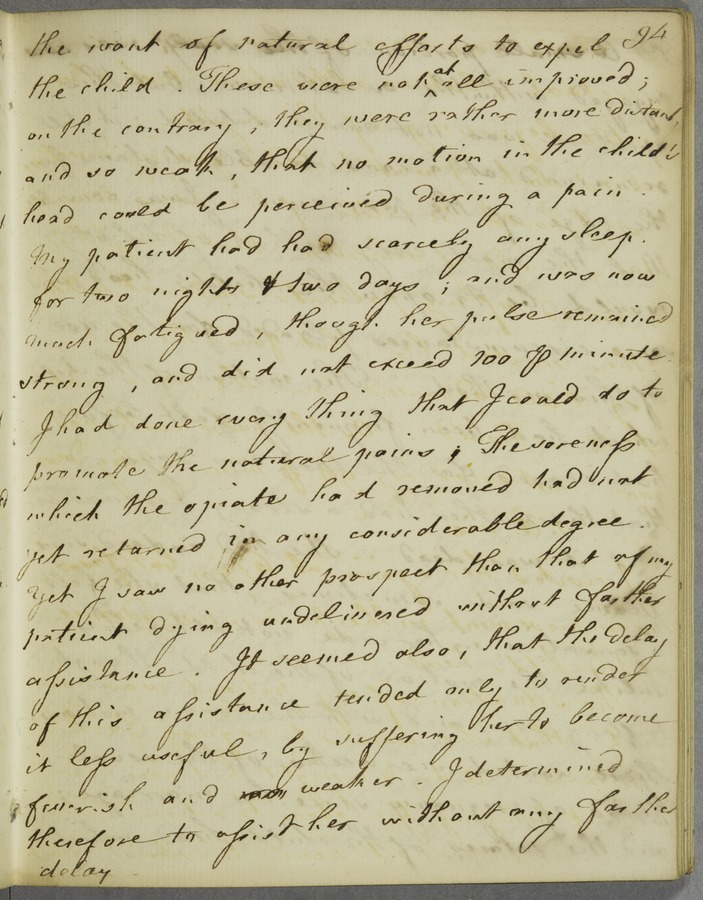 94
the want of natural efforts to expel
the child. These were not at all improved;
on the contrary, they were rather more distant,
and so weak, that no motion in the child's
head could be perceived during a pain.
My patient had had scarcely any sleep
for two nights & two days; and was now
much fatigued, though her pulse remained
strong, and did not exceed 100 ℘ minute.
I had done every thing that I could do to
promote the natural pains; The soreness
which the opiate had removed had not
yet returned in any considerable degree.
Yet I saw no other prospect than that of my
patient dying undelivered without farther
assistance. It seemed also, that the delay
of this assistance tended only to render
it less useful, by suffering her to become
feverish and weaker. I determined
therefore to assist her without any farther
delay